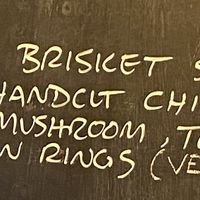 BRISKET S
HANDCUT CHI
MUSHROOM, T
N RINGS (VE